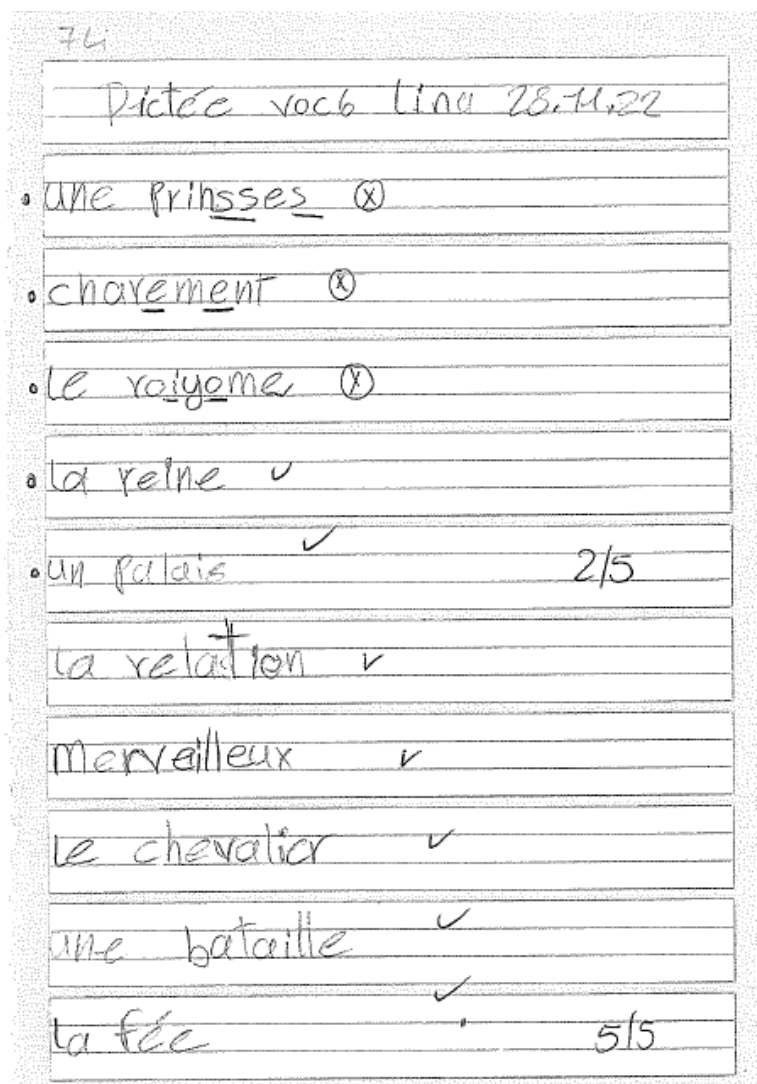 74
Dictée vocb Lina 28.11.22
une prinsses
chavement
le roiyome
la reine ✓
un palais ✓ 2/5
la relation ✓
merveilleux ✓
le chevalier ✓
une bataille ✓
la fée ✓ 5/5